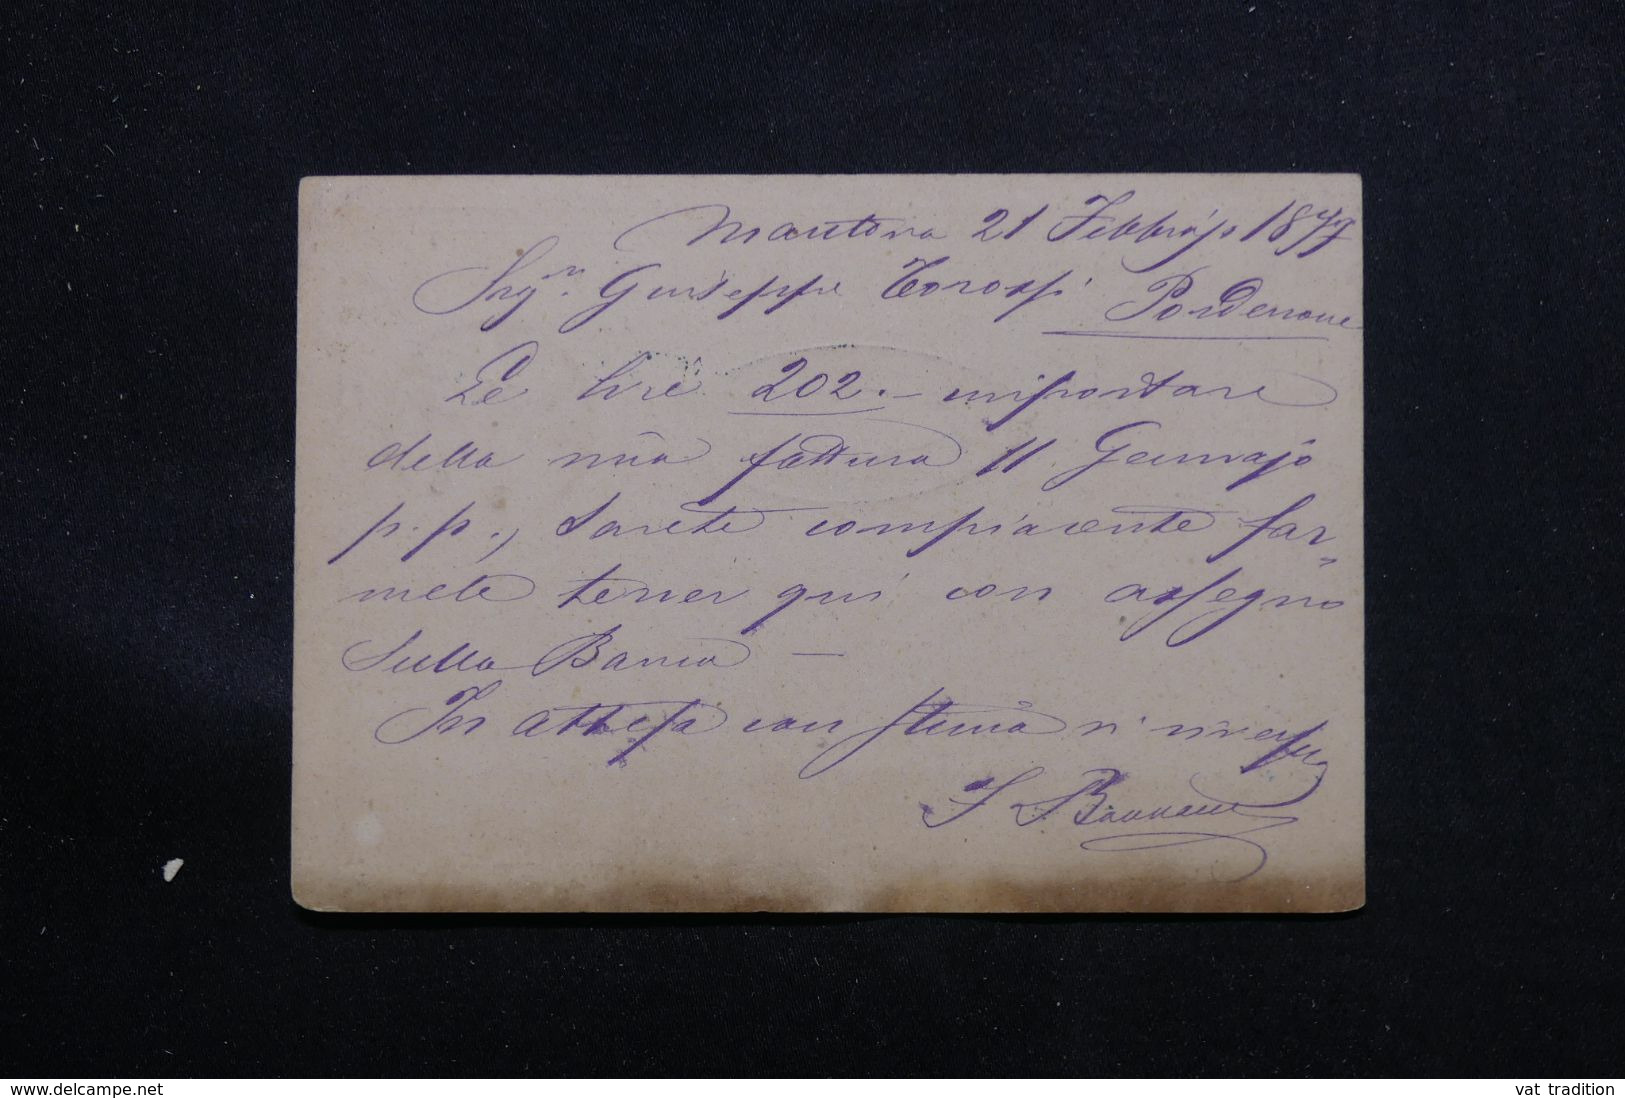 Mantova 21 Febbrajo 1877
Sigr. Giuseppe Torossi Pordenone
Le lire 202.- importare
della mia fattura 11 Gennajo
p.p., sarete compiacente far-
mele tener qui con assegno
sulla Banca —
In attesa con stima vi riverisco
www.delcampe.net
vat_tradition